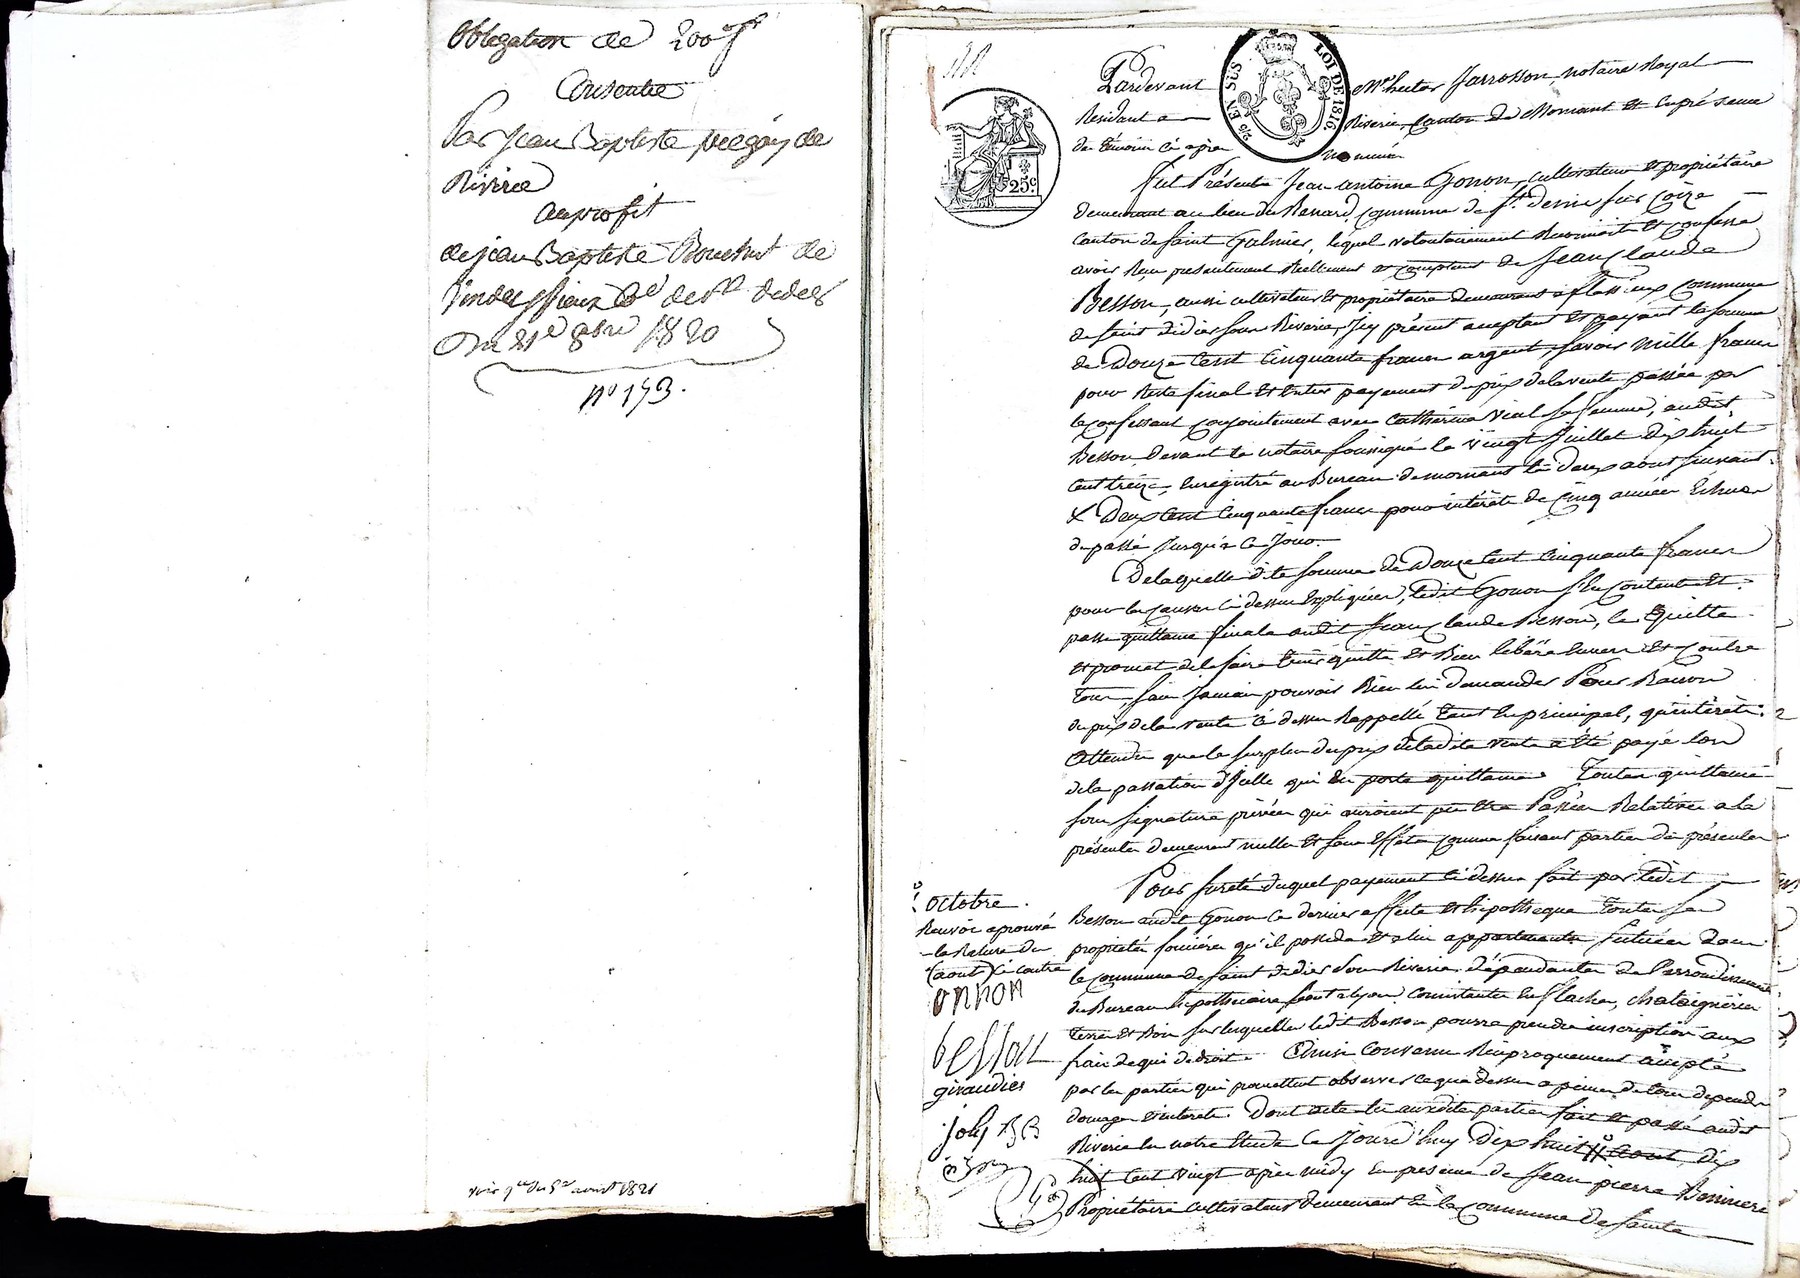 Obligation de 200 fr
Consentie
Par Jean Baptiste pregny de
Riverie
au profit
de jean Baptiste Bouchut de
de St didier
Du 21e 8bre 1820
no 153.
voir qce du 5 avril 1821
EN SUS LOI DE 1816
25c
Pardevant Me hector Jarrosson notaire Royal
Résidant a Riverie, Canton de Mornant et en présence
des témoins ci après nommés
fut Présent Jean antoine Gonon, cultivateur et propriétaire
demeurant au lieu du Renard, commune de St denis sur Coize
canton de saint Galmier, lequel volontairement Reconnoit et confesse
avoir Reçu presentement Réellement et comptant de Jean Claude
Besson, aussi cultivateur et propriétaire demeurant a commune
de saint didier sous Riverie, Icy présent acceptant et payant la somme
de Douze Cent Cinquante francs argent, savoir mille francs
pour Reste final et entier payement du prix de la vente passée par
le confessant conjointement avec Catherine Vial sa femme, audit
Besson, devant le notaire soussigné le vingt Juillet dix huit
cent treize, enregistré au Bureau de mornant le deux aout suivant.
& Deux Cent Cinquante francs pour intérêts de Cinq années Echues
du passé Jusqu'a ce Jour.
De laquelle dite somme de Douze Cent Cinquante francs
pour les causes ci dessus Expliquées, ledit Gonon s'en contente et
passe quittance finale audit Jean Claude Besson, le Quitte
et promet de le faire tenir quitte et Bien libéré Envers et Contre
tous, sans Jamais pouvoir Rien lui demander Pour Raison
du prix de la vente ci dessus Rappellé tant en principal, qu'intérêts
Attendu que le surplus du prix de ladite vente a été payé lors
de la passation d'Icelle qui en porte quittance. Toutes quittances
sous signature privées qui auroient pu etre Passées Relatives a la
présente demeurent nulles et sans Effets comme faisant partie des présentes
Pour sureté duquel payement ci dessus fait par ledit
Besson audit Gonon ce dernier affecte et hipothèque toutes ses
propriétés foncières qu'il possède et a lui appartenantes situées dans
la Commune de saint didier sous Riverie, dépendantes de l'arrondissement
du Bureau hipothécaire séant a Lyon, Consistantes En chataigneries
terres et Bois sur lesquelles ledit Besson pourra prendre inscription aux
frais de qui de droit. Ainsi Convenu Réciproquement accepté
par les parties qui promettent observer ce que dessus a peine de tous dépends
domages et interets. Dont acte les susdites parties fait et passé audit
Riverie en notre Etude Ce Jourd'huy Dix huit aout dix
huit cent vingt après midy En présence de Jean pierre
Propriétaire cultivateur demeurant en la Commune de sainte
octobre
Renvoi aprouvé
la Rature du
(aout) ci contre
onnon
besson
giraudier
joly